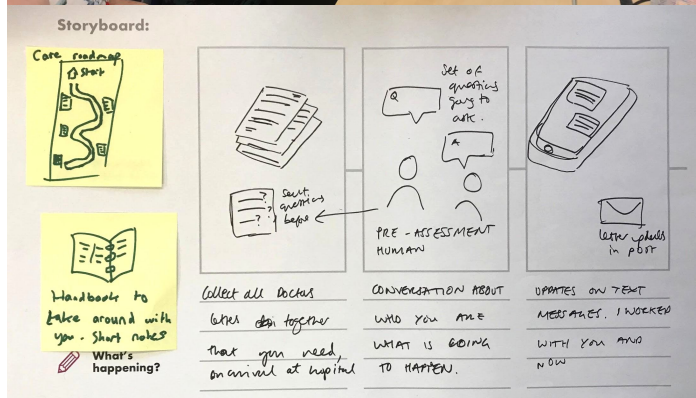 Storyboard:
Care roadmap
Start
Handbook to
take around with
you. Short notes
What's
happening?
?
?
?
Sent
questions
before
Collect all Doctors
letters together
that you need,
on arrival at hospital
Set of
questions
going to
ask.
Q
A
PRE-ASSESSMENT
HUMAN
CONVERSATION ABOUT
WHO YOU ARE
WHAT IS GOING
TO HAPPEN.
letter updates
in post
UPDATES ON TEXT
MESSAGES. I WORKED
WITH YOU AND
NOW